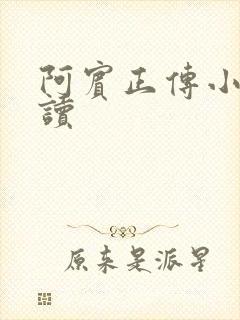 阿賓正傳小
讀
原来是派星